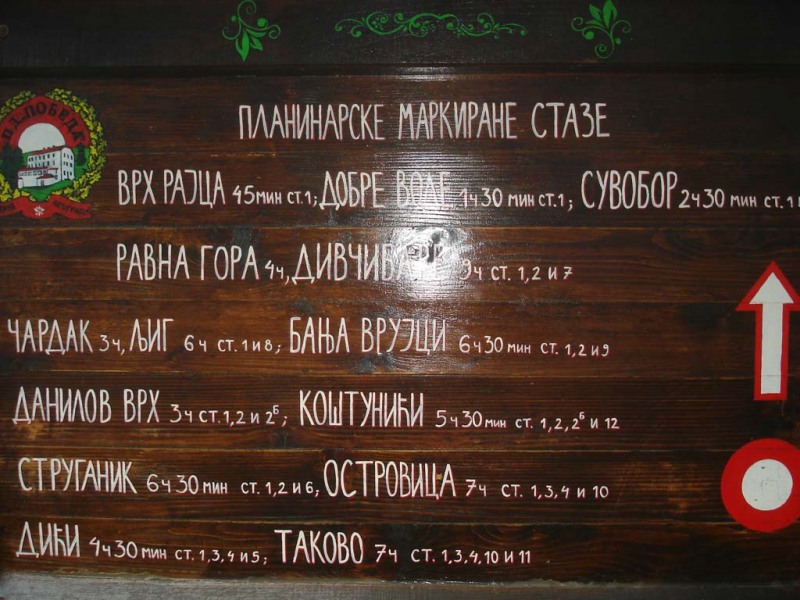 П.Д. „ПОБЕДА"
ПЛАНИНАРСКЕ МАРКИРАНЕ СТАЗЕ
ВРХ РАЈЦА 45МИН СТ.1; ДОБРЕ ВОДЕ 1Ч30 МИН СТ.1; СУВОБОР 2Ч30 МИН СТ.1
РАВНА ГОРА 4Ч, 9Ч СТ. 1,2 И 7
ЧАРДАК 3Ч, ЉИГ 6Ч СТ.1 И 8; БАЊА ВРУЈЦИ 6Ч30 МИН СТ. 1,2 И 9
ДАНИЛОВ ВРХ 3Ч СТ.1,2 И 2Б; КОШТУНИЋИ 5Ч30 МИН СТ. 1,2,2Б И 12
СТРУГАНИК 6Ч30 МИН СТ.1,2 И 6; ОСТРОВИЦА 7Ч СТ. 1,3,4 И 10
ДИЋИ 4Ч30 МИН СТ.1,3,4 И 5; ТАКОВО 7Ч СТ. 1,3,4,10 И 11